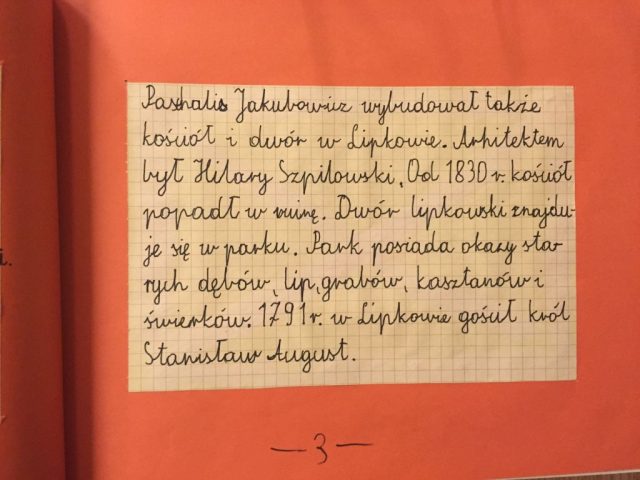 Paschalis Jakubowicz wybudował także
kościół i dwór w Lipkowie. Arhitektem
był Hilary Szpilowski. Od 1830 r. kościół
popadł w ruinę. Dwór lipkowski znajdu-
je się w parku. Park posiada okazy sta-
rych dębów, lip, grabów, kasztanów i
świerków. 1791 r. w Lipkowie gościł król
Stanisław August.
i.
— 3 —